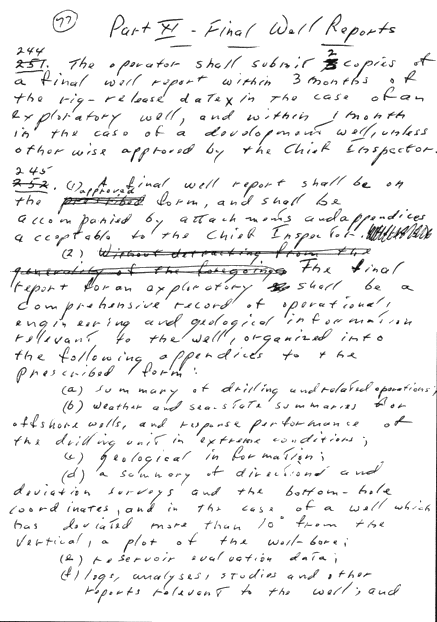 77
Part XI - Final Well Reports
244
251. The operator shall submit 2 copies of
a final well report within 3 months of
the rig-release date, in the case of an
exploratory well, and within 1 month
in the case of a development well, unless
otherwise approved by the Chief Inspector.
245
252. (1) A final well report shall be on
approved
the prescribed form, and shall be
accompanied by attachments and appendices
acceptable to the Chief Inspector.
(2) Without detracting from the
generality of the foregoing, The final
report for an exploratory shall be a
comprehensive record of operational,
engineering and geological information
relevant to the well, organized into
the following appendices to the
prescribed form:
(a) summary of drilling and related operations;
(b) weather and sea-state summaries for
offshore wells, and response performance of
the drilling unit in extreme conditions;
(c) geological information;
(d) a summary of directional and
deviation surveys and the bottom-hole
coordinates, and in the case of a well which
has deviated more than 10° from the
vertical, a plot of the well-bore;
(e) reservoir evaluation data;
(f) logs, analyses, studies and other
reports relevant to the well; and